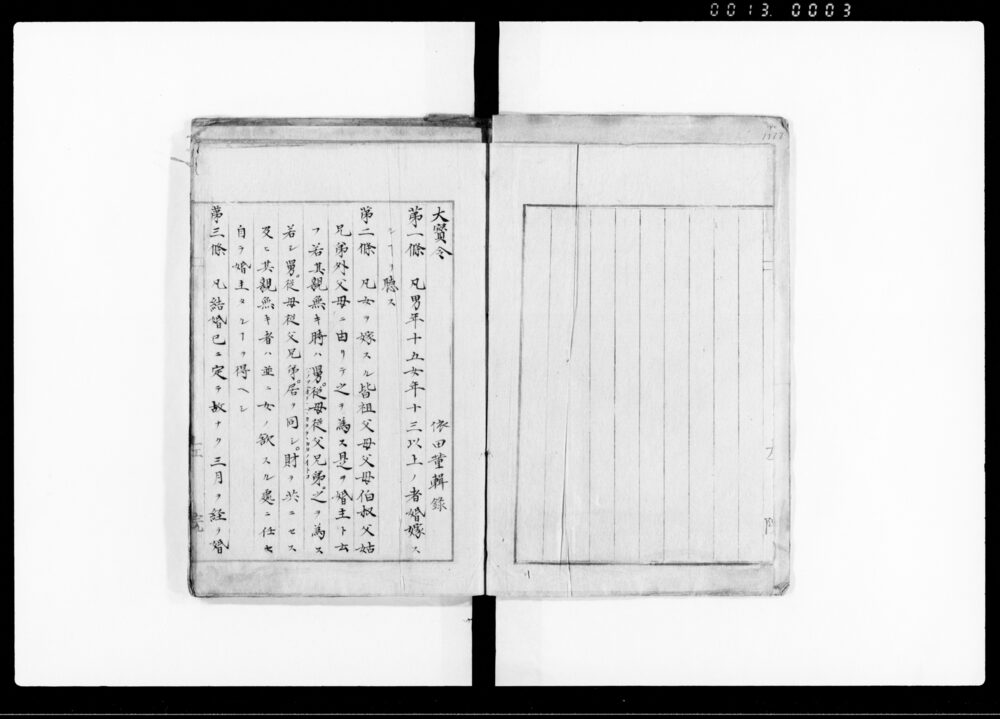 0013. 0003
大寳令
依田薫輯録
第一條 凡男年十五女年十三以上ノ者婚嫁ス
ルヿヲ聴ス
第二條 凡女ヲ嫁スル皆祖父母父母伯叔父姑
兄弟外父母ニ由リテ之ヲ為ス是ヲ婚主ト云
フ若其親無キ時ハ舅。從母從父兄弟。之ヲ為ス
若シ舅。從母從父兄弟。居ヲ同シ。財ヲ共ニセス
及ヒ其親無キ者ハ並ニ女ノ欲スル處ニ任セ
自ラ婚主タルヿヲ得ヘシ
第三條 凡結婚已ニ定テ故ナク三月ヲ経ヲ婚